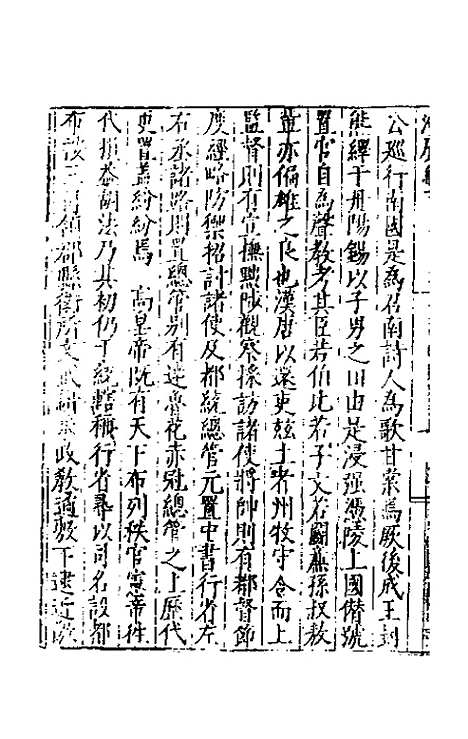 公巡行南國是為召南詩人為歌甘棠焉厥後成王封
熊繹于丹陽錫以子男之田由是浸强馮陵上國僭號
置官自為聲教考其臣若伯比若子文若鬬廉若孫叔敖
並亦偏雄之良也漢唐以還更兹土者州牧守令而上
監督則有宣撫黜陟觀察採訪諸使將帥則有都督節
度經略防禦招討諸使及都統總管元置中書行省左
右丞諸路則置總管別有達魯花赤冠總管之上歷代
更置蓋紛紛焉 高皇帝既有天下布列秩官寔帝往
代損益詞法乃其初仍于統轄稱行省尋以司名設都
布 領郡縣衛所文武 政教通 下